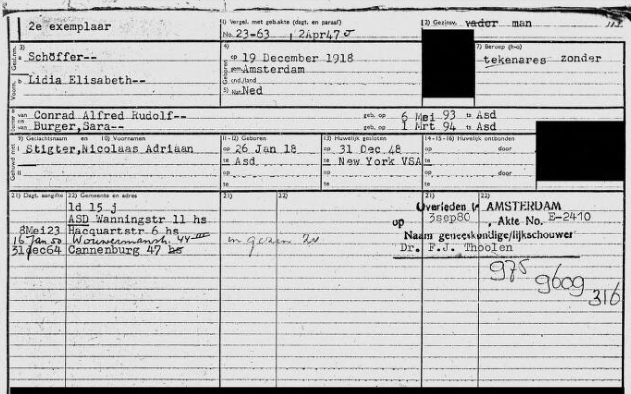 2e exemplaar
1) Vergel. met gebakte (dagt. en paraaf)
No. 23-63 , 2Apr47
2) Gezinsv. vader man
3)
a Schöffer--
b Lidia Elisabeth--
4)
op 19 December 1918
gem Amsterdam
5) Nat. Ned
7) Beroep (h-o)
tekenares zonder
van Conrad Alfred Rudolf-- geb. op 6 Mei 93 te Asd
en van Burger,Sara-- geb. op 1 Mrt 94 te Asd
9) Geslachtsnaam en 10) Voornamen
11-12) Geboren
13) Huwelijk gesloten
14-15-16) Huwelijk ontbonden
i Stigter,Nicolaas Adriaan
op 26 Jan 18
op 31 Dec 48
op door
te Asd
te New York VSA
te
ii
op
op
op door
te
te
te
21) Dagt. aangifte 22) Gemeente en adres
21) 22) 21) 22)
ld 15 j
ASD Wanningstr 11 hs
8Mei23 Hacquartstr 6 hs
16 Jan 50 Wouwermanstr. 44 III
31dec64 Cannenburg 47 hs
Overleden te AMSTERDAM
op 3sep80 , Akte No. E-2410
Naam geneeskundige/lijkschouwer
Dr. F.J. Tholen
975
9609
316